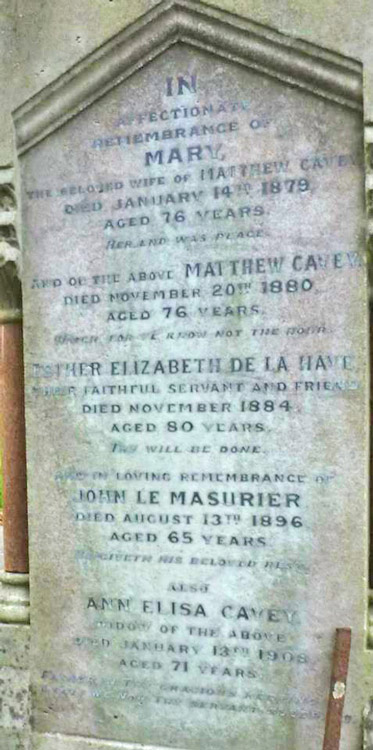 IN
AFFECTIONATE
REMEMBRANCE OF
MARY,
THE BELOVED WIFE OF MATTHEW CAVEY,
DIED JANUARY 14TH 1879,
AGED 76 YEARS.
HER END WAS PEACE.
AND OF THE ABOVE MATTHEW CAVEY,
DIED NOVEMBER 20TH 1880
AGED 76 YEARS.
WATCH FOR YE KNOW NOT THE HOUR.
ESTHER ELIZABETH DE LA HAYE
THEIR FAITHFUL SERVANT AND FRIEND
DIED NOVEMBER 1884.
AGED 80 YEARS.
THY WILL BE DONE.
AND IN LOVING REMEMBRANCE OF
JOHN LE MASURIER
DIED AUGUST 13TH 1896
AGED 65 YEARS.
HE GIVETH HIS BELOVED REST.
ALSO
ANN ELISA CAVEY,
WIDOW OF THE ABOVE
DIED JANUARY 13TH 1908
AGED 71 YEARS.
FATHER IN THY GRACIOUS KEEPING
THY SERVANT